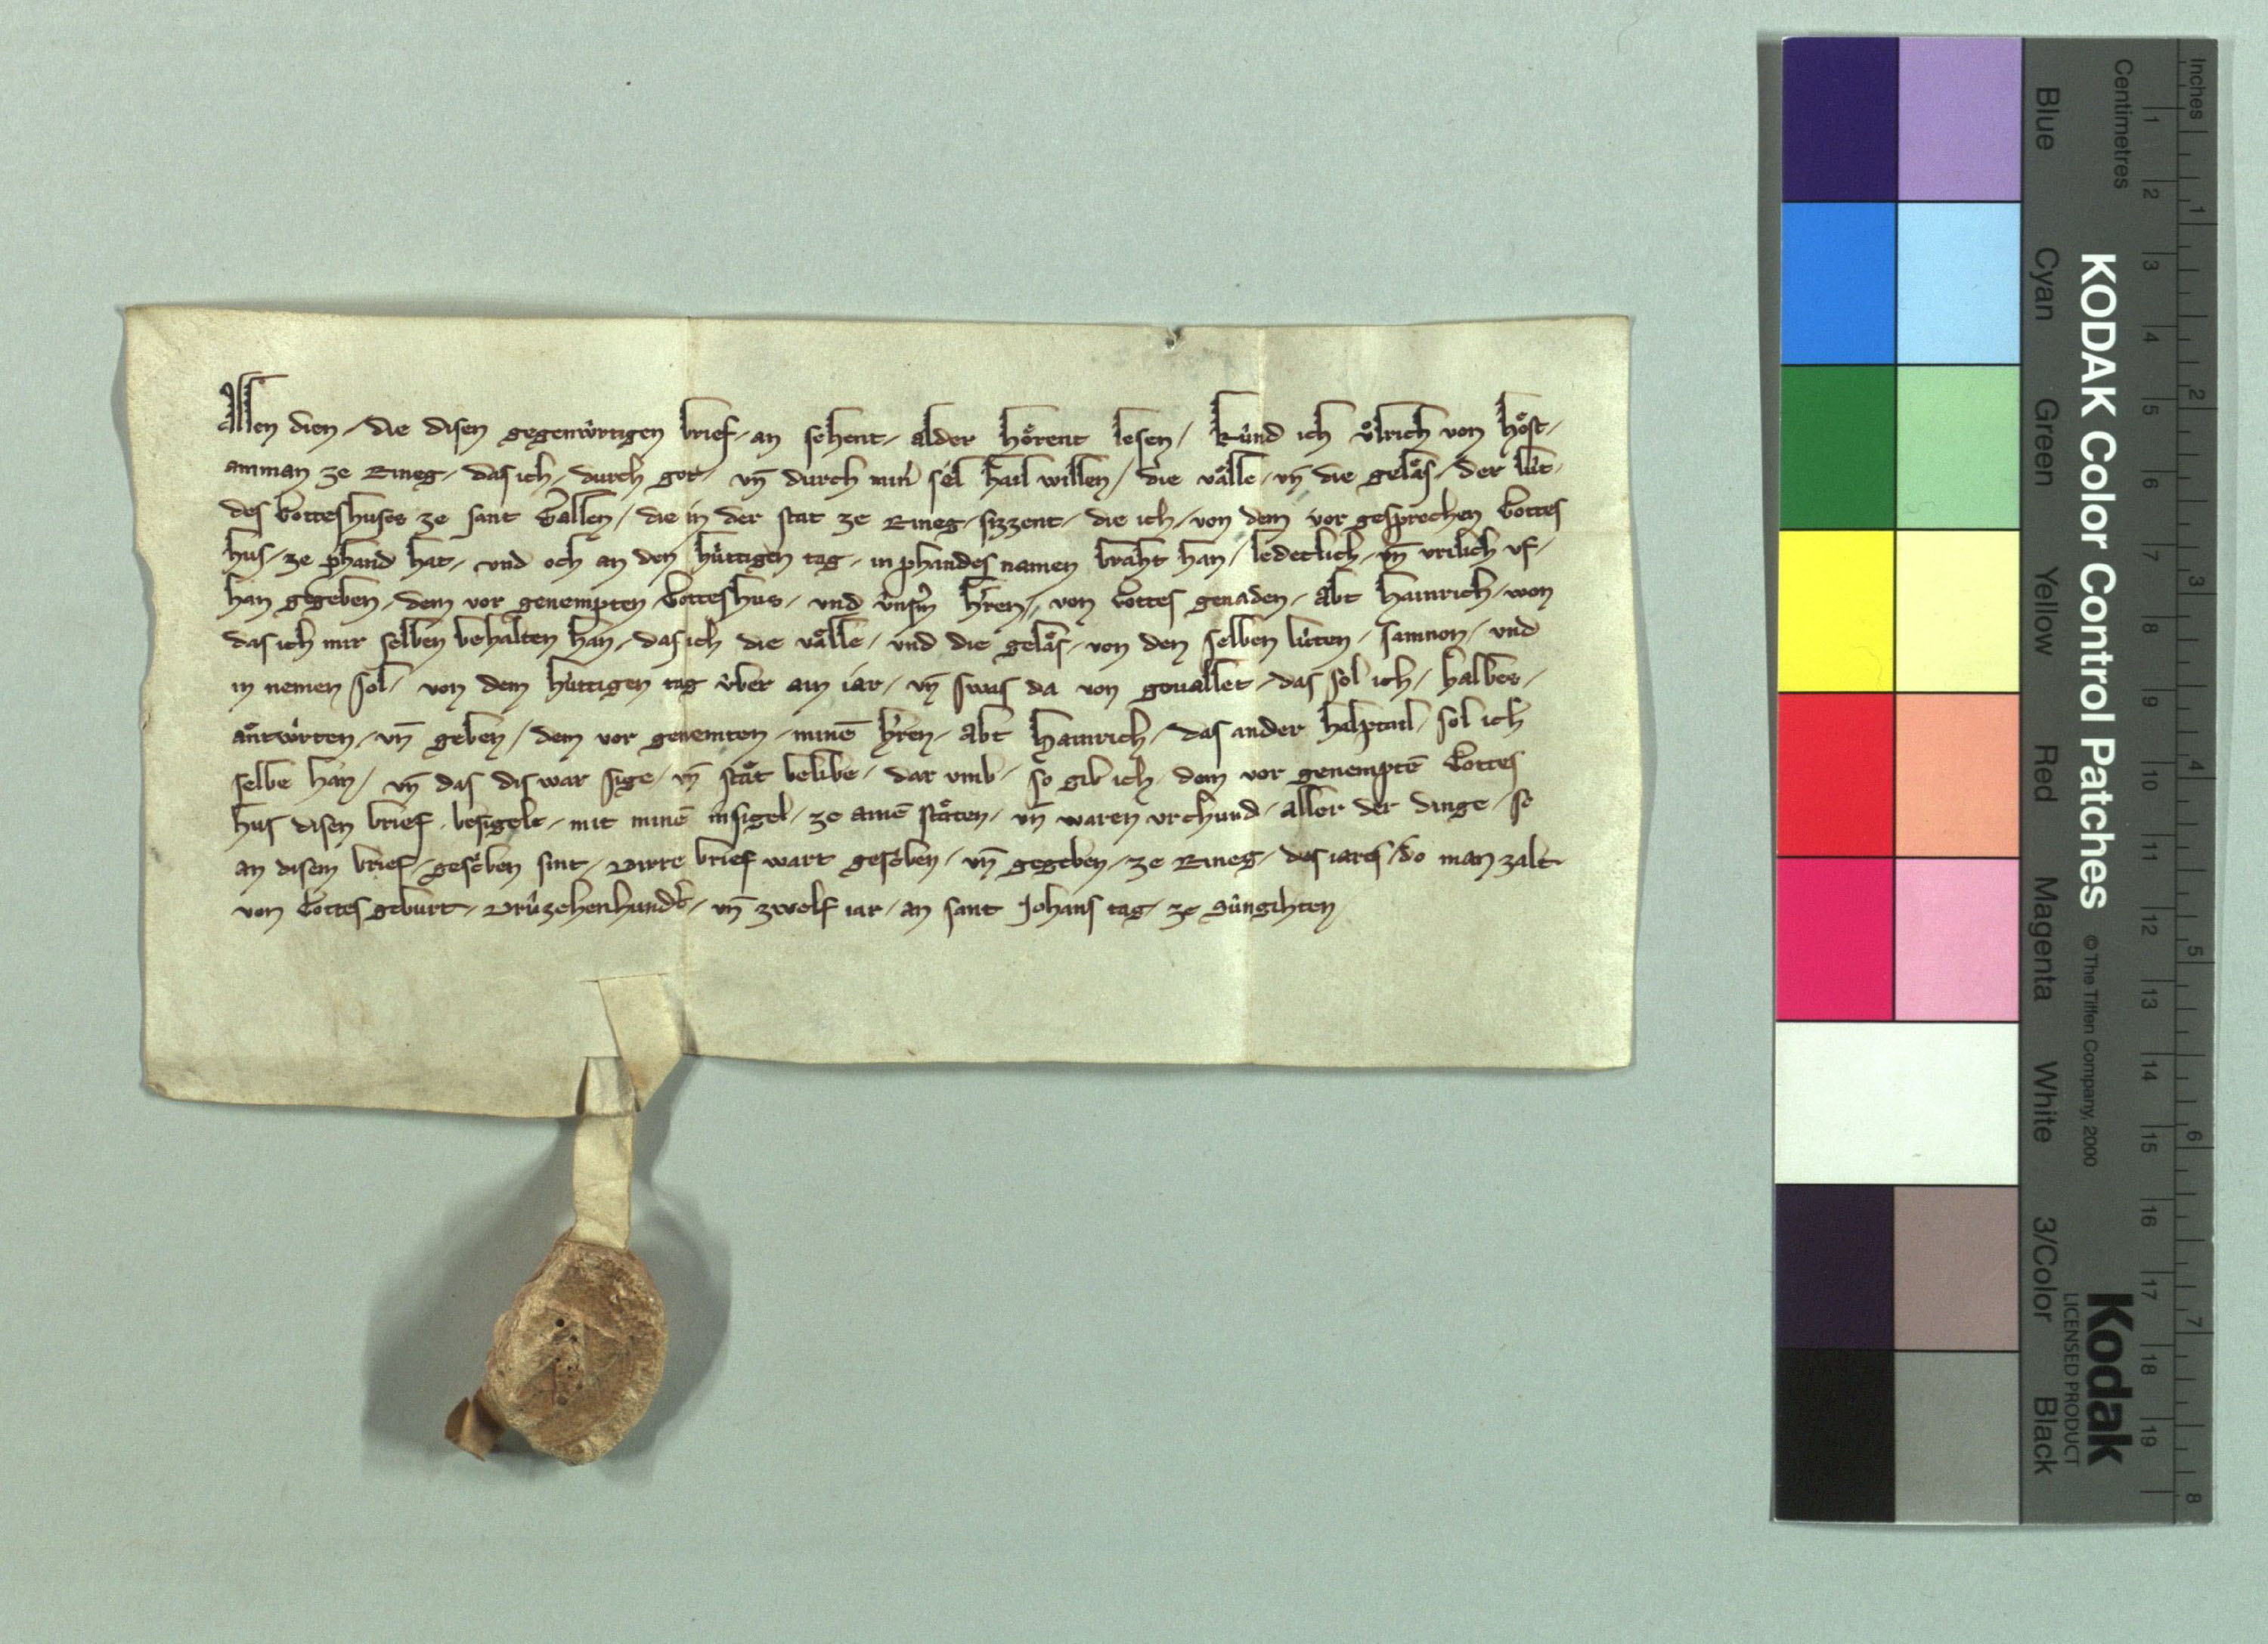 Allen dien / die disen gegenwúrtigen brief / an sehent / alder hoͤrent lesen / kúnd ich uͦlrich von hoͤst /
amman ze Rineg / das ich / durch got / vn̄ durch min̾ sel hail willen / die vaͤlle / vn̄ die gelaͤs / der lút /
des Gotteshuses ze sant Gallen / die in der stat ze Rineg / sizzent / die ich / von dem vor gesprochen Gottes
hus / ze phand hat / vnd och an den húttigen tag / in phandes namen braht han / ledeclich / vn̄ vrilich vf /
han gegeben / dem vor genempten Gotteshus / vnd v́nsm̾ h̾ren / von Gottes genaden / Abt Hainrich / won
das ich mir selben behalten han / das ich die vaͤlle / vnd die gelaͤs / von den selben lúten / samnon / vnd
in nemen sol / von dem húttigen tag v́ber ain iar / vn̄ swas da von geuallet / das sol ich / halbes /
aͤntwúrten / vn̄ geben / dem vor genemten / minē h̾ren / Abt Hainrich / das ander halptail / sol ich
selbe han / vn̄ das dis war sige / vn̄ staͤt belibe / dar vmb / so gib ich / dem vor genemptē Gottes
hus disen brief / besigelt / mit minē insigel / ze ainē staͤten / vn̄ waren vrchund / aller der dinge / so
an disem brief / gesc̾ben sint / Dirre brief wart gesc̾ben / vn̄ gegeben / ze Rineg / des iares / do man zalt
von Gottes geburt / Drúzehenhund̾t / vn̄ zwelf iar / an sant Johans tag / ze Súngihten
Inches
Centimetres
1 2 3 4 5 6 7 8
1 2 3 4 5 6 7 8 9 10 11 12 13 14 15 16 17 18 19
KODAK Color Control Patches
© The Tiffen Company, 2000
Kodak
LICENSED PRODUCT
Blue Cyan Green Yellow Red Magenta White 3/Color Black